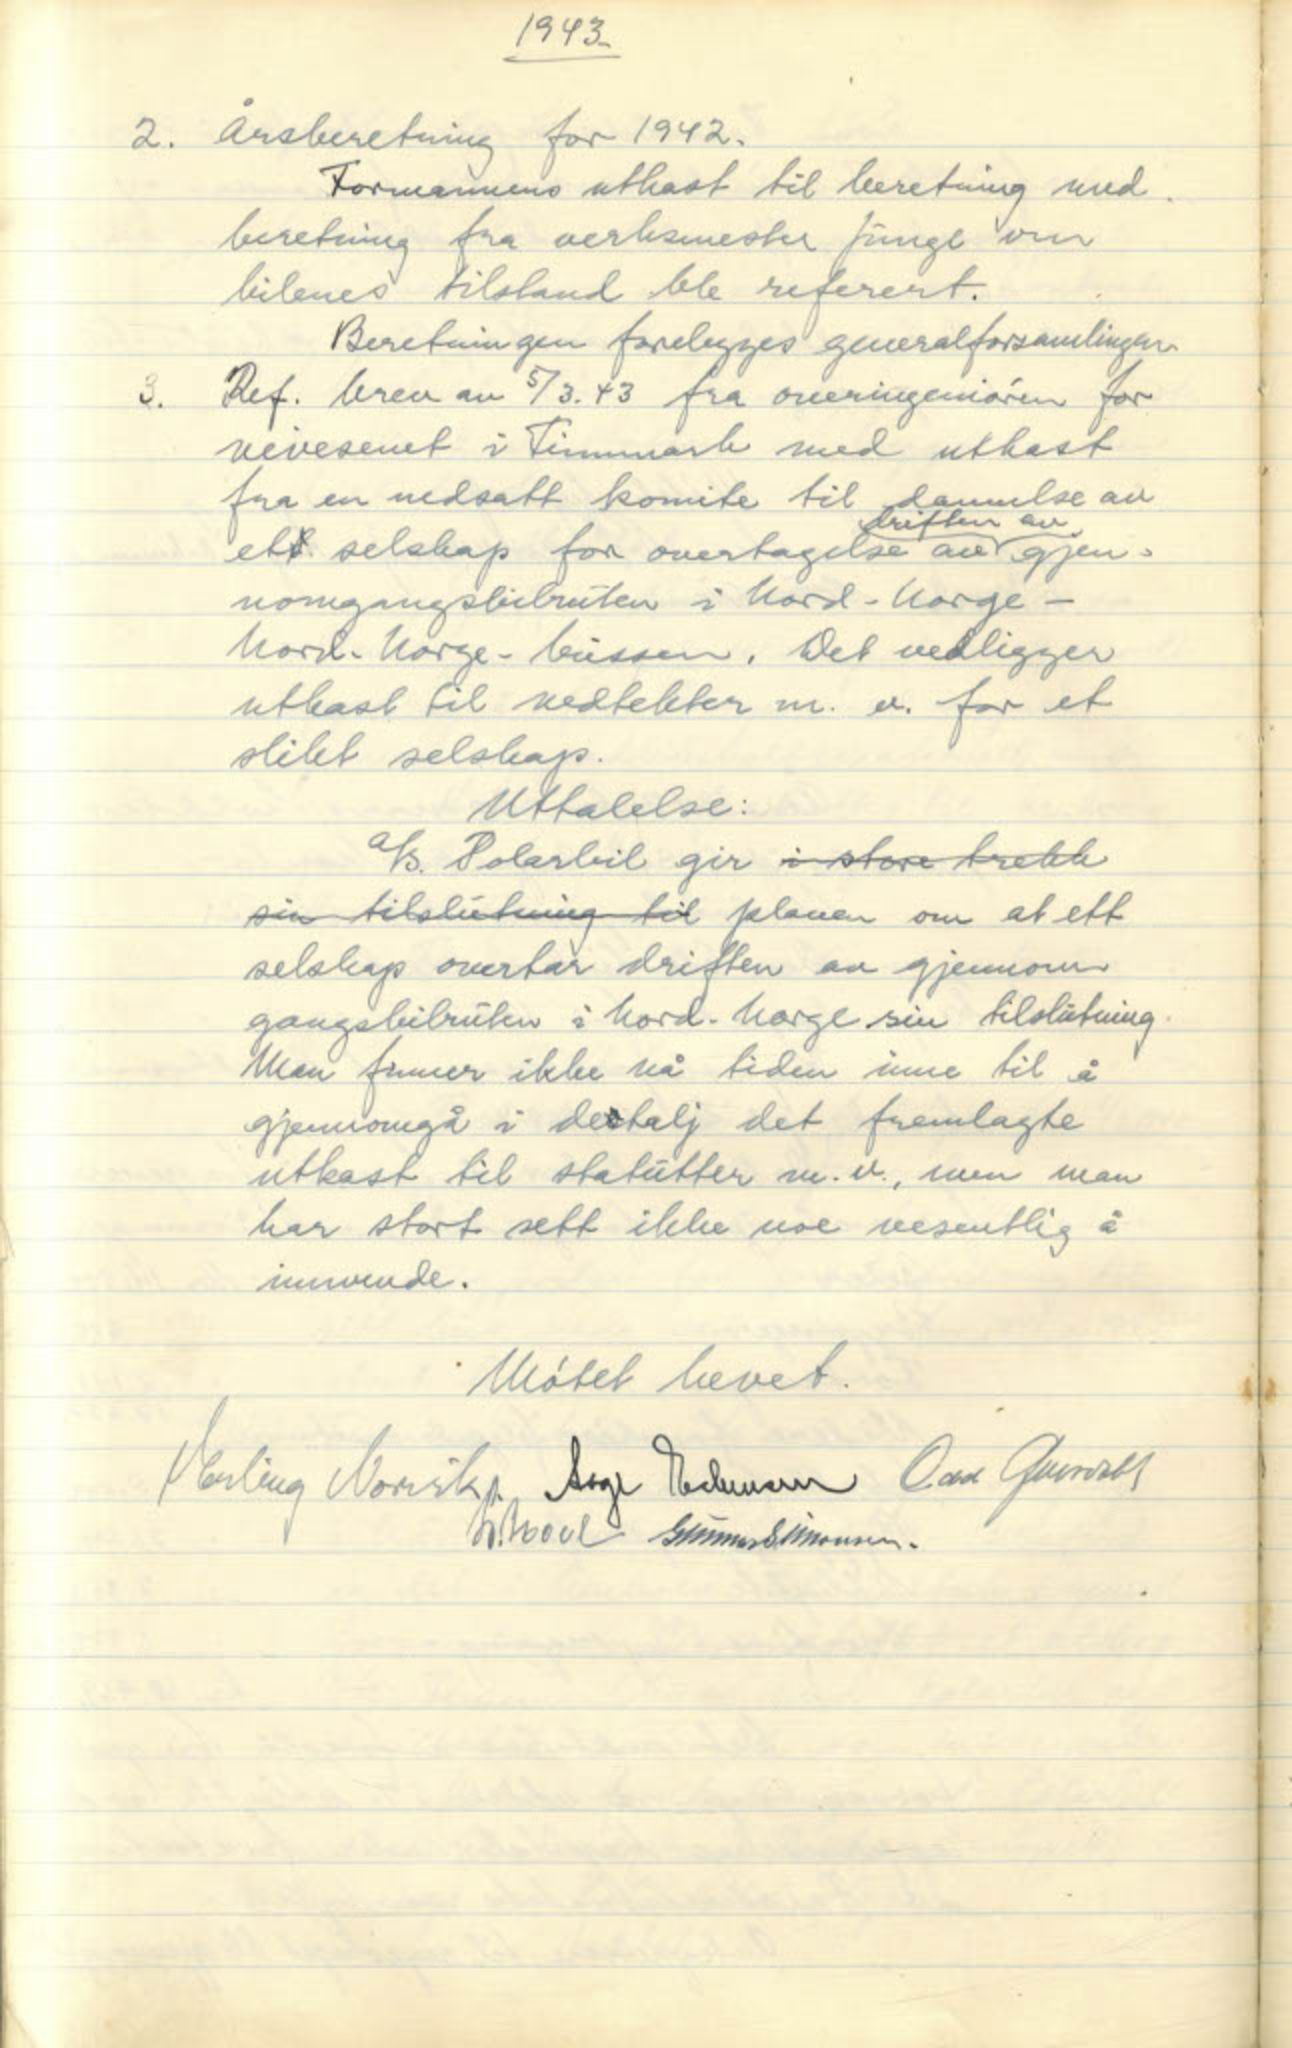 1943.
2. Årsberetning for 1942.
Formannens utkast til beretning med
beretning fra verksmester Junge om
bilenes tilstand ble referert.
Beretningen forelegges generalforsamlingen.
3. Ref. brev av 5/3.43 fra overingeniøren for
veivesenet i Finnmark med utkast
fra en nedsatt komite til dannelse av
driften av
ett selskap for overtagelse av gjen-
nomgangsbilruten i Nord-Norge –
Nord-Norge-bussen. Det vedligger
utkast til vedtekter m. v. for et
slikt selskap.
Uttalelse:
A/S. Polarbil gir i store trekk
sin tilslutning til planen om at ett
selskap overtar driften av gjennom-
gangsbilruten i Nord-Norge sin tilslutning.
Man finner ikke nå tiden inne til å
gjennomgå i detalj det fremlagte
utkast til statutter m. v., men man
har stort sett ikke noe vesentlig å
innvende.
Møtet hevet.
Erling Norvik. Aage Odd
Gunnar Simonsen.